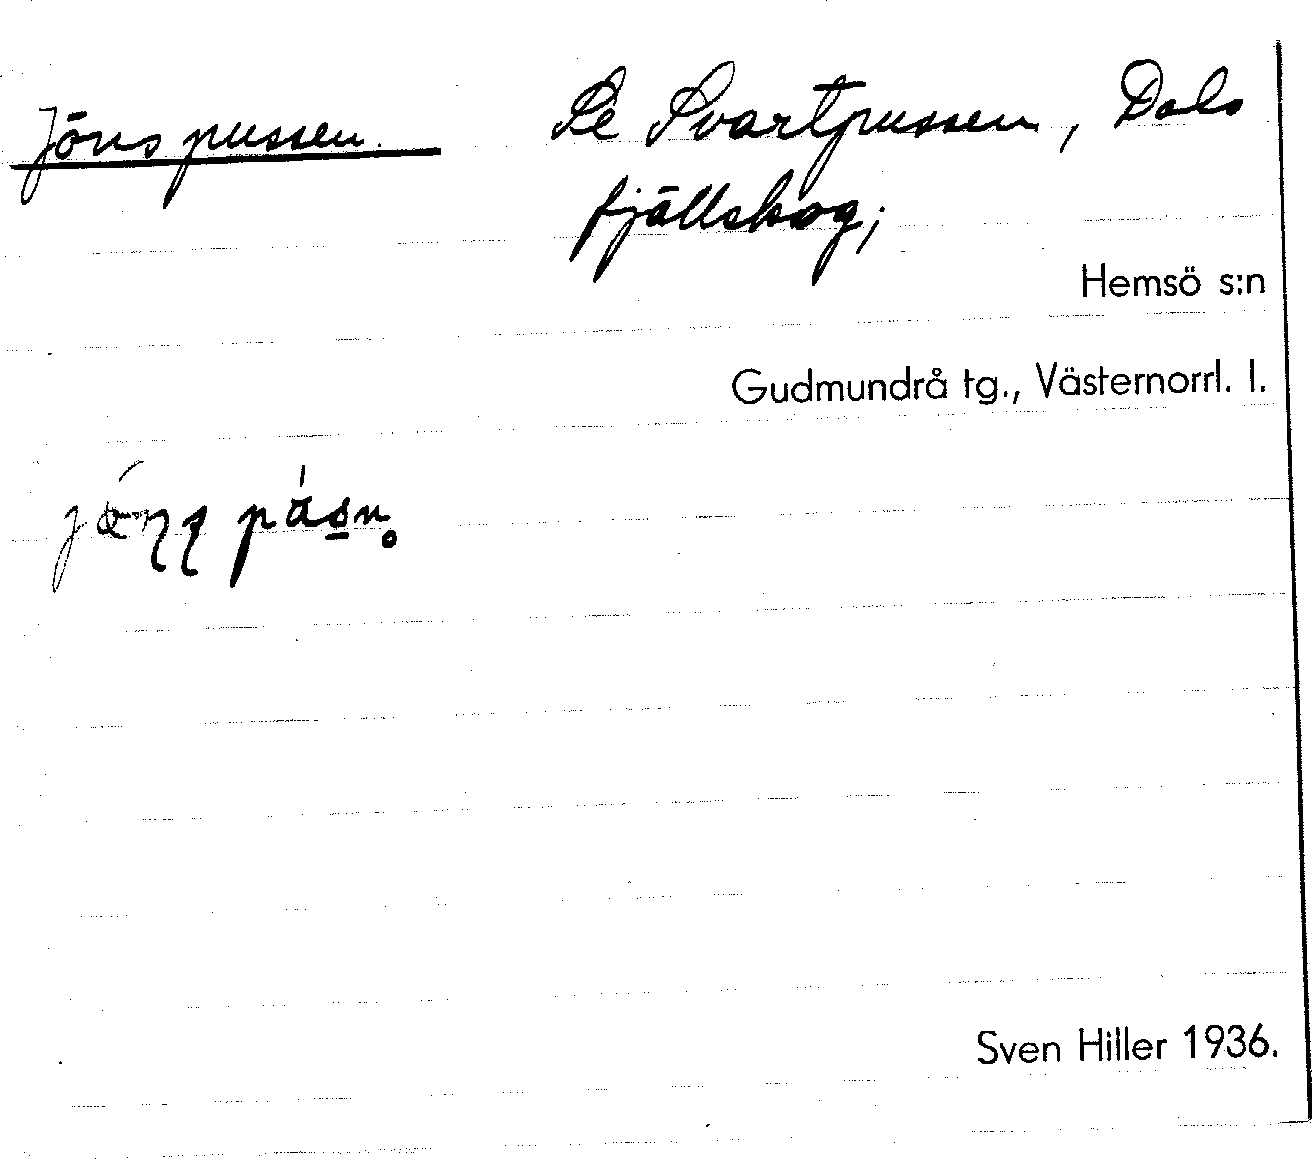 Jönspussen. Se Svartpussen, Dals
fjällskog;
Hemsö s:n
Gudmundrå tg., Västernorrl. l.
Sven Hiller 1936.